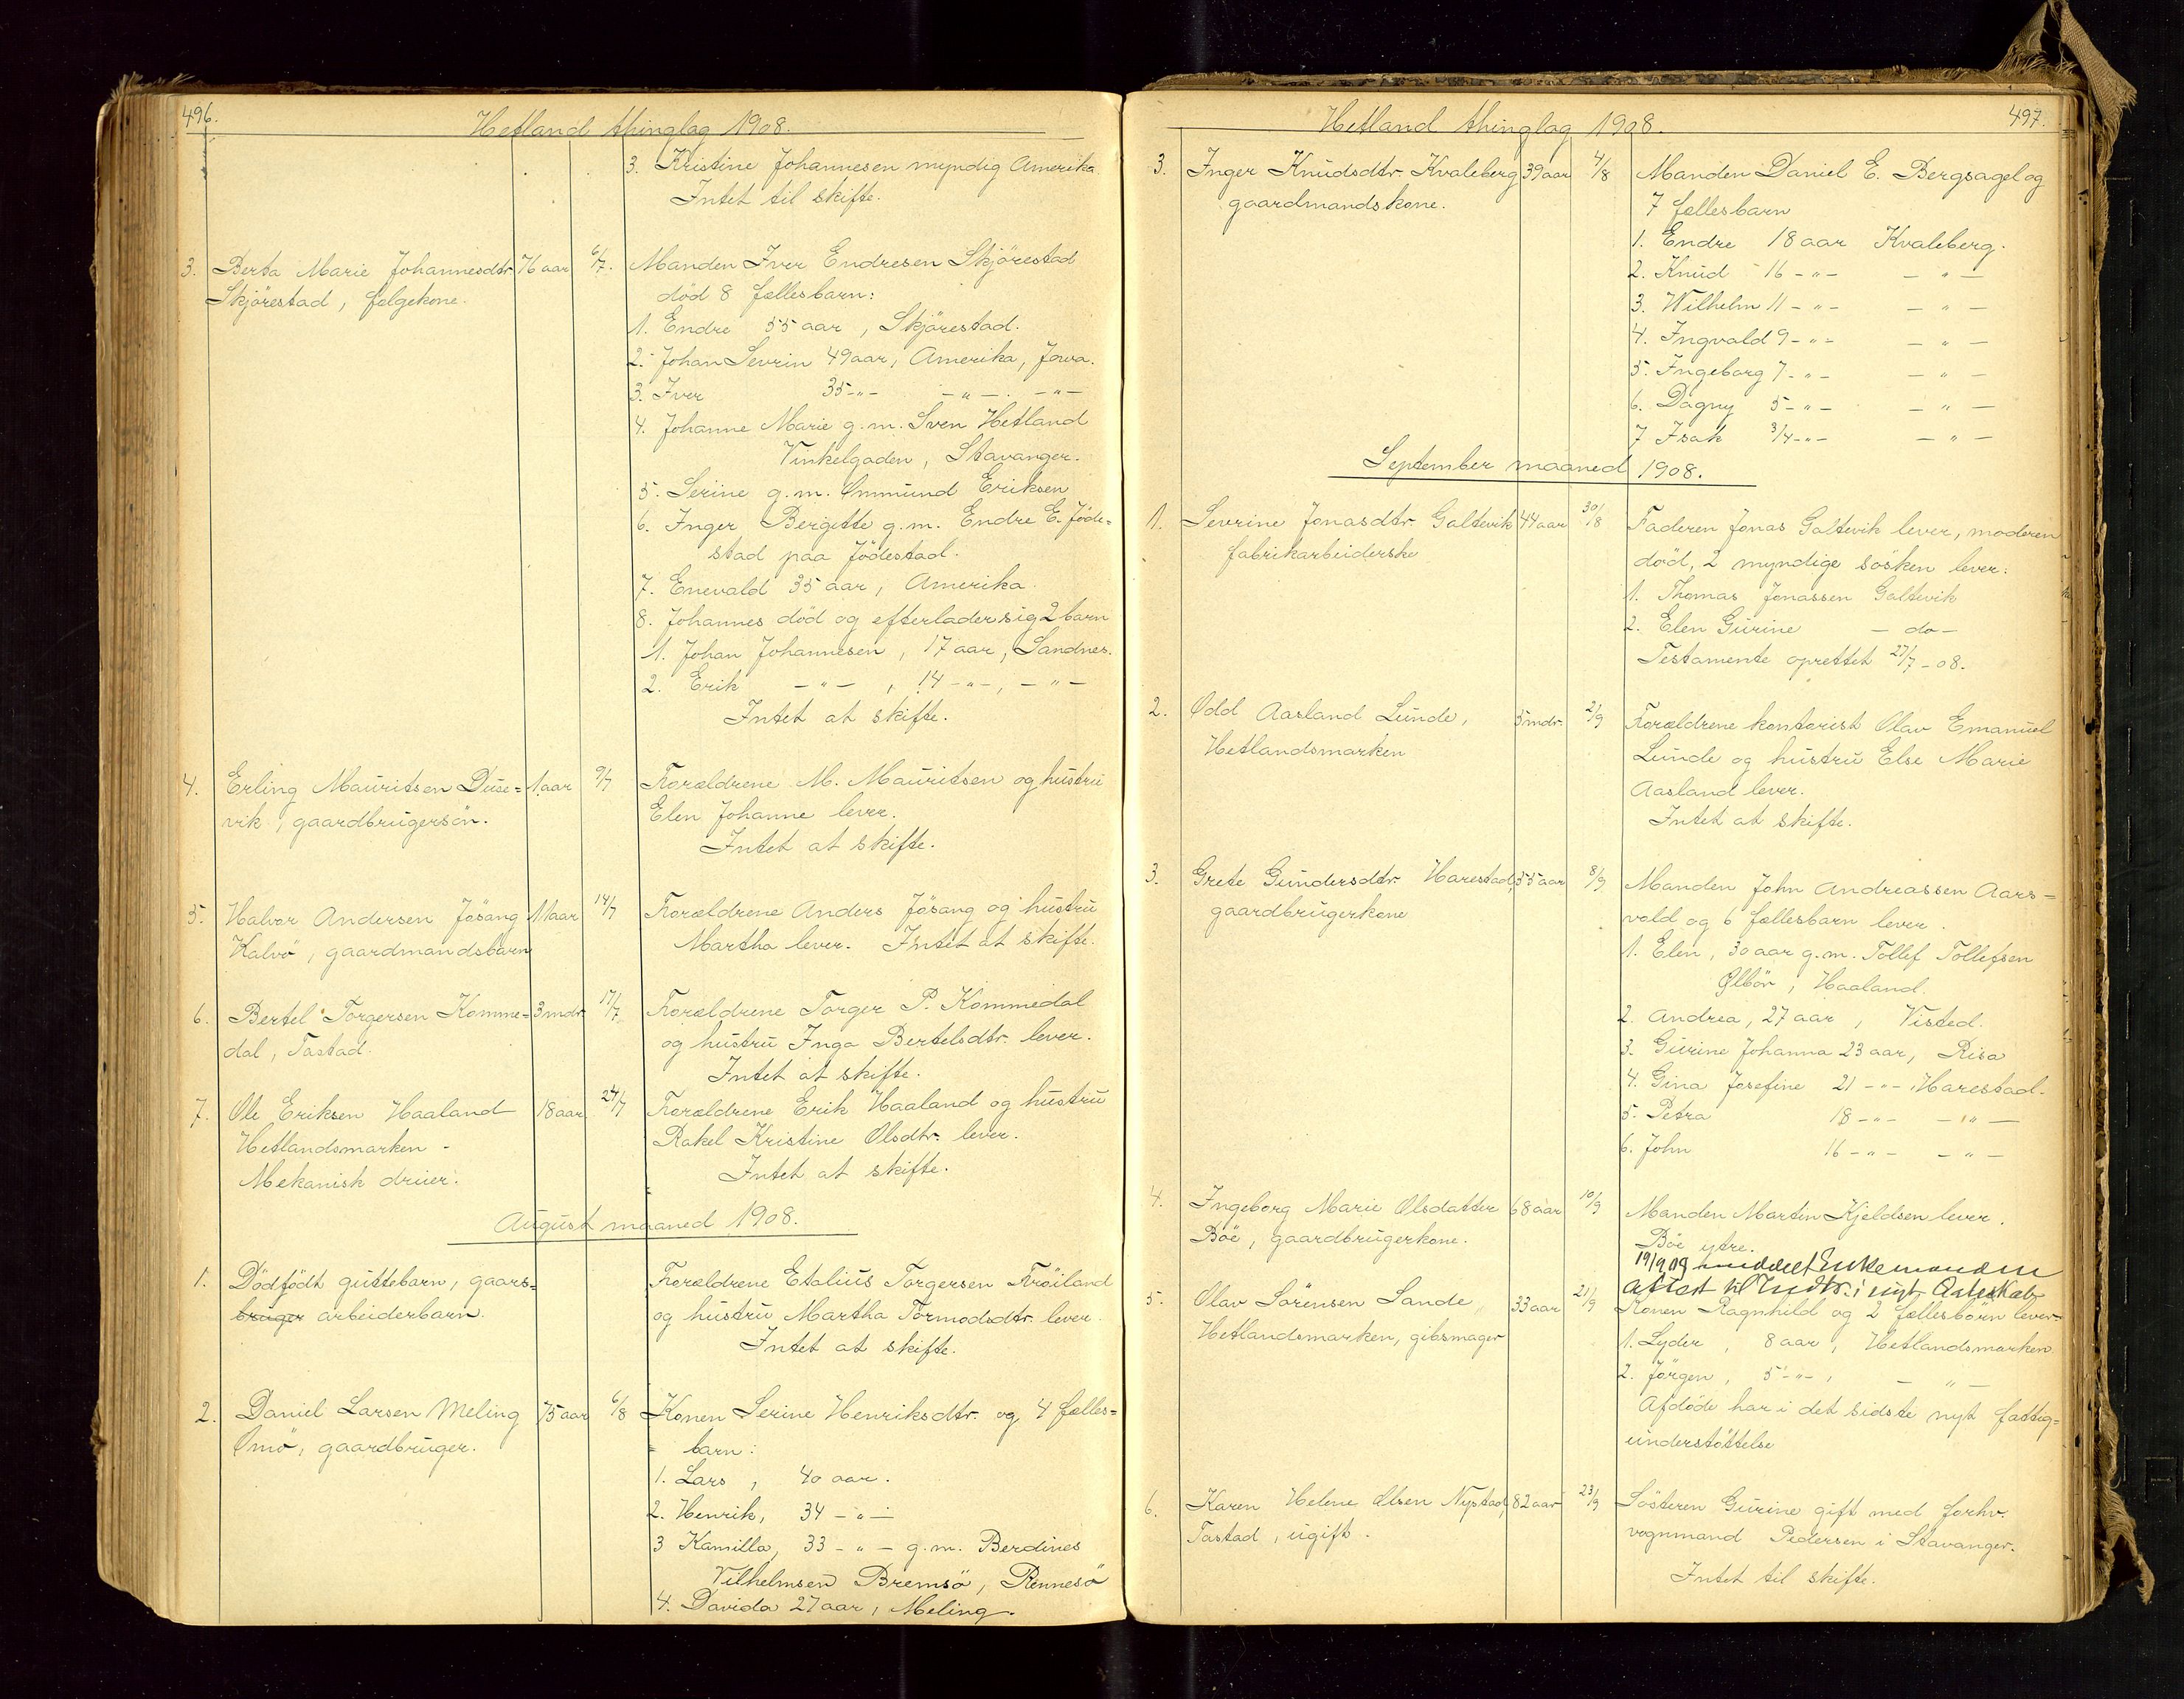 496.
Hetland thinglag 1908.
3. Kristine Johannesen myndig Amerika
Intet til skifte.
3. Berta Marie Johannesdtr. 76 aar 6/7. Manden Iver Endresen Skjörestad
Skjörestad, følgekone. død 8 fællesbarn:
1. Endre 55 aar, Skjörestad.
2. Johan Sevrin 49 aar, Amerika, Jowa.
3. Iver 35 -"- -"- . -"-
4. Johanne Marie g.m. Sven Hetland
Vinkelgaden, Stavanger.
5. Serine g.m. Ommund Eriksen
6. Inger Bergitte g.m. Endre E. Jöde=
stad paa Jödestad.
7. Enevald 35 aar, Amerika.
8. Johannes död og efterlader sig 2 barn
1. Johan Johannesen, 17 aar, Sandnes.
2. Erik -"- , 14 -"-, -"-
Intet at skifte.
4. Erling Mauritsen Duse= 1 aar 9/7 Forældrene M. Mauritsen og hustru
vik, gaardbrugersön. Elen Johanne lever.
Intet at skifte.
5. Halvor Andersen Jösang 11 aar 14/7 Forældrene Anders Jösang og hustru
Kalvö, gaardmandsbarn Martha lever. Intet at skifte.
6. Bertel Torgersen Komme= 3 mdr. 17/7 Forældrene Torger P. Kommedal
dal, Tastad. og hustru Inga Bertelsdtr. lever.
Intet at skifte.
7. Ole Eriksen Haaland 18 aar 24/7 Forældrene Erik Haaland og hustru
Hetlandsmarken - Rakel Kristine Olsdtr. lever.
Mekanisk driver. Intet at skifte.
August maaned 1908.
1. Dödfödt guttebarn, gaars= Forældrene Etalius Torgersen Tröiland
bruger arbeiderbarn. og hustru Martha Tormodsdtr. lever.
Intet at skifte.
2. Daniel Larsen Meling 75 aar 6/8 Konen Serine Henriksdtr. og 4 fælles=
Omö, gaardbruger. = barn:
1. Lars, 40 aar.
2. Henrik, 34 -"-
3 Kamilla, 33 -"- g.m. Berdines
Vilhelmsen Bremsö, Rennesö
4. Davida 27 aar, Meling.
497.
Hetland thinglag 1908.
3. Inger Knudsdtr. Kvaleberg 39 aar 4/8 Manden Daniel E. Bergsagel og
gaardmandskone. 7 fællesbarn
1. Endre 18 aar Kvaleberg.
2. Knud 16 -"- -"-
3. Wilhelm 11 -"- -"-
4. Ingvald 9 -"- -"-
5. Ingeborg 7 -"- -"-
6. Dagny 5 -"- -"-
7 Isak 3/4 -"- -"-
September maaned 1908.
1. Sevrine Jonasdtr. Galtevik 44 aar 30/8 Faderen Jonas Galtevik lever, moderen
fabrikarbeiderske död, 2 myndige sösken lever:
1. Thomas Jonassen Galtevik
2. Elen Gurine - do -
Testamente oprettet 27/7 - 08.
2. Odd Aasland Lunde, 5 mdr. 2/9 Forældrene kontorist Olav Emanuel
Hetlandsmarken Lunde og hustru Else Marie
Aasland lever.
Intet at skifte.
3. Grete Gundersdtr. Harestad, 55 aar 8/9 Manden John Andreassen Aars=
gaardbrugerkone vold og 6 fællesbarn lever.
1. Elen, 30 aar g.m. Tollef Tollefsen
Ølbör, Haaland.
2. Andrea, 27 aar, Visted.
3. Gurine Johanna 23 aar, Risa
4. Gina Josefine 21 -"- , Harestad.
5. Petra 18 -"- -"-
6. John 16 -"- -"-
4. Ingeborg Marie Olsdatter 68 aar 10/9 Manden Martin Kjeldsen lever.
Böe, gaardbrugerkone. Böe ytre.
19/9 09 meddelt Enkemanden
Attest til Indtr. i nyt Ægteskab
5. Olav Sörensen Sande 33 aar 21/9 Konen Ragnhild og 2 fællesbörn lever
Hetlandsmarken, gibsmager 1. Lyder, 8 aar, Hetlandsmarken
2. Jörgen, 5 -"-, -"-
Afdöde har i det sidste nyt fattig=
understöttelse
6. Karen Helene Olsen Nystad, 82 aar 23/9 Sösteren Gurine gift med forhv.
Tastad, ugift. vognmand Pedersen i Stavanger.
Intet til skifte.